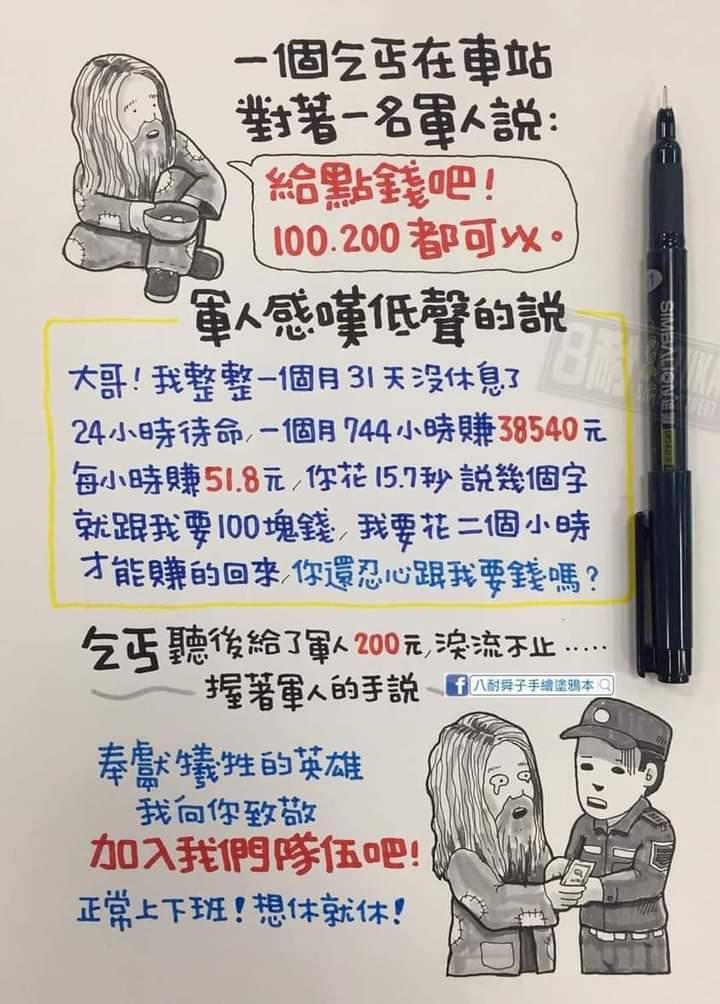 一個乞丐在車站
對著一名軍人說:
給點錢吧!
100.200都可以。
軍人感嘆低聲的說
大哥!我整整一個月31天沒休息了
24小時待命,一個月744小時賺38540元
每小時賺51.8元,你花15.7秒說幾個字
就跟我要100塊錢,我要花二個小時
才能賺的回來,你還忍心跟我要錢嗎?
乞丐聽後給了軍人200元,淚流不止.....
握著軍人的手說
八耐舜子手繪塗鴉本
奉獻犧牲的英雄
我向你致敬
加入我們隊伍吧!
正常上下班!想休就休!
SIMBALION
1